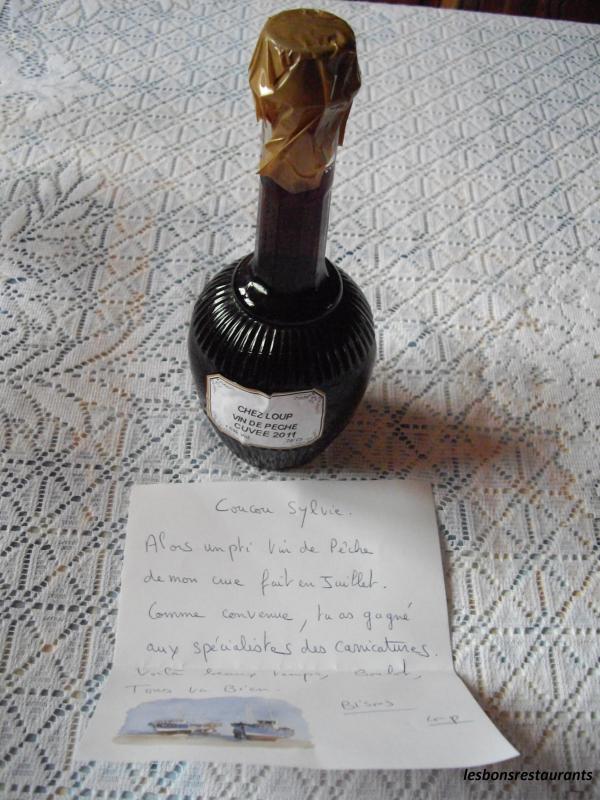 CHEZ LOUP
VIN DE PECHE
CUVEE 2011
Coucou Sylvie.
Alors un pti Vin de Pêche
de mon cuve fait en Juillet.
Comme convenue, tu as gagné
aux spécialistes des Carricatures.
Voilà beaux temps, Boulot,
Tous va Bien.
Bisous
Loup
lesbonsrestaurants